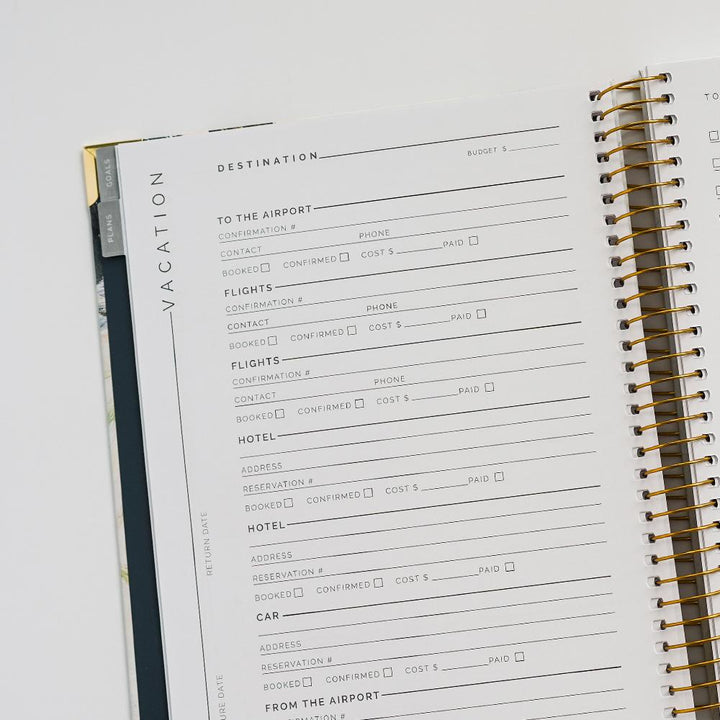 GOALS
PLANS
VACATION
DESTINATION
BUDGET $
TO THE AIRPORT
CONFIRMATION #
CONTACT PHONE
BOOKED CONFIRMED COST $ PAID
FLIGHTS
CONFIRMATION #
CONTACT PHONE
BOOKED CONFIRMED COST $ PAID
FLIGHTS
CONFIRMATION #
CONTACT PHONE
BOOKED CONFIRMED COST $ PAID
HOTEL
ADDRESS
RESERVATION #
BOOKED CONFIRMED COST $ PAID
HOTEL
ADDRESS
RESERVATION #
BOOKED CONFIRMED COST $ PAID
CAR
ADDRESS
RESERVATION #
BOOKED CONFIRMED COST $ PAID
FROM THE AIRPORT
CONFIRMATION #
RETURN DATE
URE DATE
TO